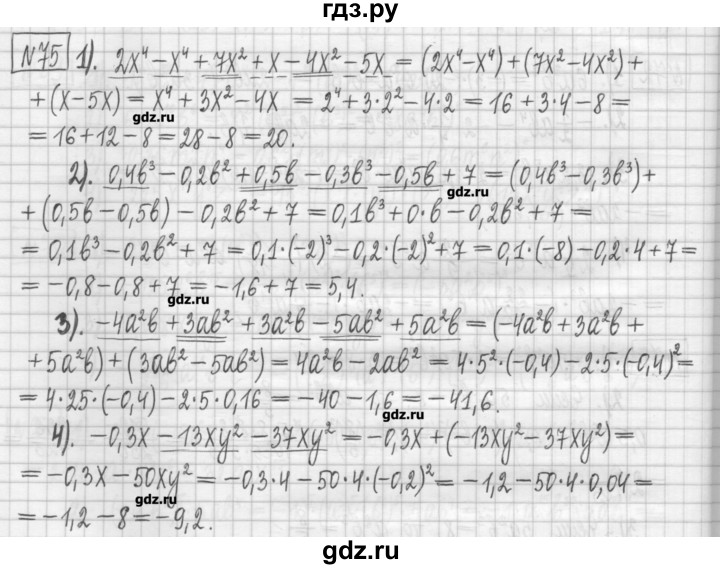 гдз.ру
№75 1). 2x⁴ - x⁴ + 7x² + x - 4x² - 5x = (2x⁴ - x⁴) + (7x² - 4x²) +
+ (x - 5x) = x⁴ + 3x² - 4x = 2⁴ + 3·2² - 4·2 = 16 + 3·4 - 8 =
gdz.ru
= 16 + 12 - 8 = 28 - 8 = 20.
2). 0,4b³ - 0,2b² + 0,5b - 0,3b³ - 0,5b + 7 = (0,4b³ - 0,3b³) +
gdz.ru
+ (0,5b - 0,5b) - 0,2b² + 7 = 0,1b³ + 0·b - 0,2b² + 7 =
= 0,1b³ - 0,2b² + 7 = 0,1·(-2)³ - 0,2·(-2)² + 7 = 0,1·(-8) - 0,2·4 + 7 =
= -0,8 - 0,8 + 7 = -1,6 + 7 = 5,4.
gdz.ru
3). -4a²b + 3ab² + 3a²b - 5ab² + 5a²b = (-4a²b + 3a²b +
+ 5a²b) + (3ab² - 5ab²) = 4a²b - 2ab² = 4·5²·(-0,4) - 2·5·(-0,4)² =
= 4·25·(-0,4) - 2·5·0,16 = -40 - 1,6 = -41,6.
gdz.ru
4). -0,3x - 13xy² - 37xy² = -0,3x + (-13xy² - 37xy²) =
= -0,3x - 50xy² = -0,3·4 - 50·4·(-0,2)² = -1,2 - 50·4·0,04 =
gdz.ru
= -1,2 - 8 = -9,2.
gdz.ru